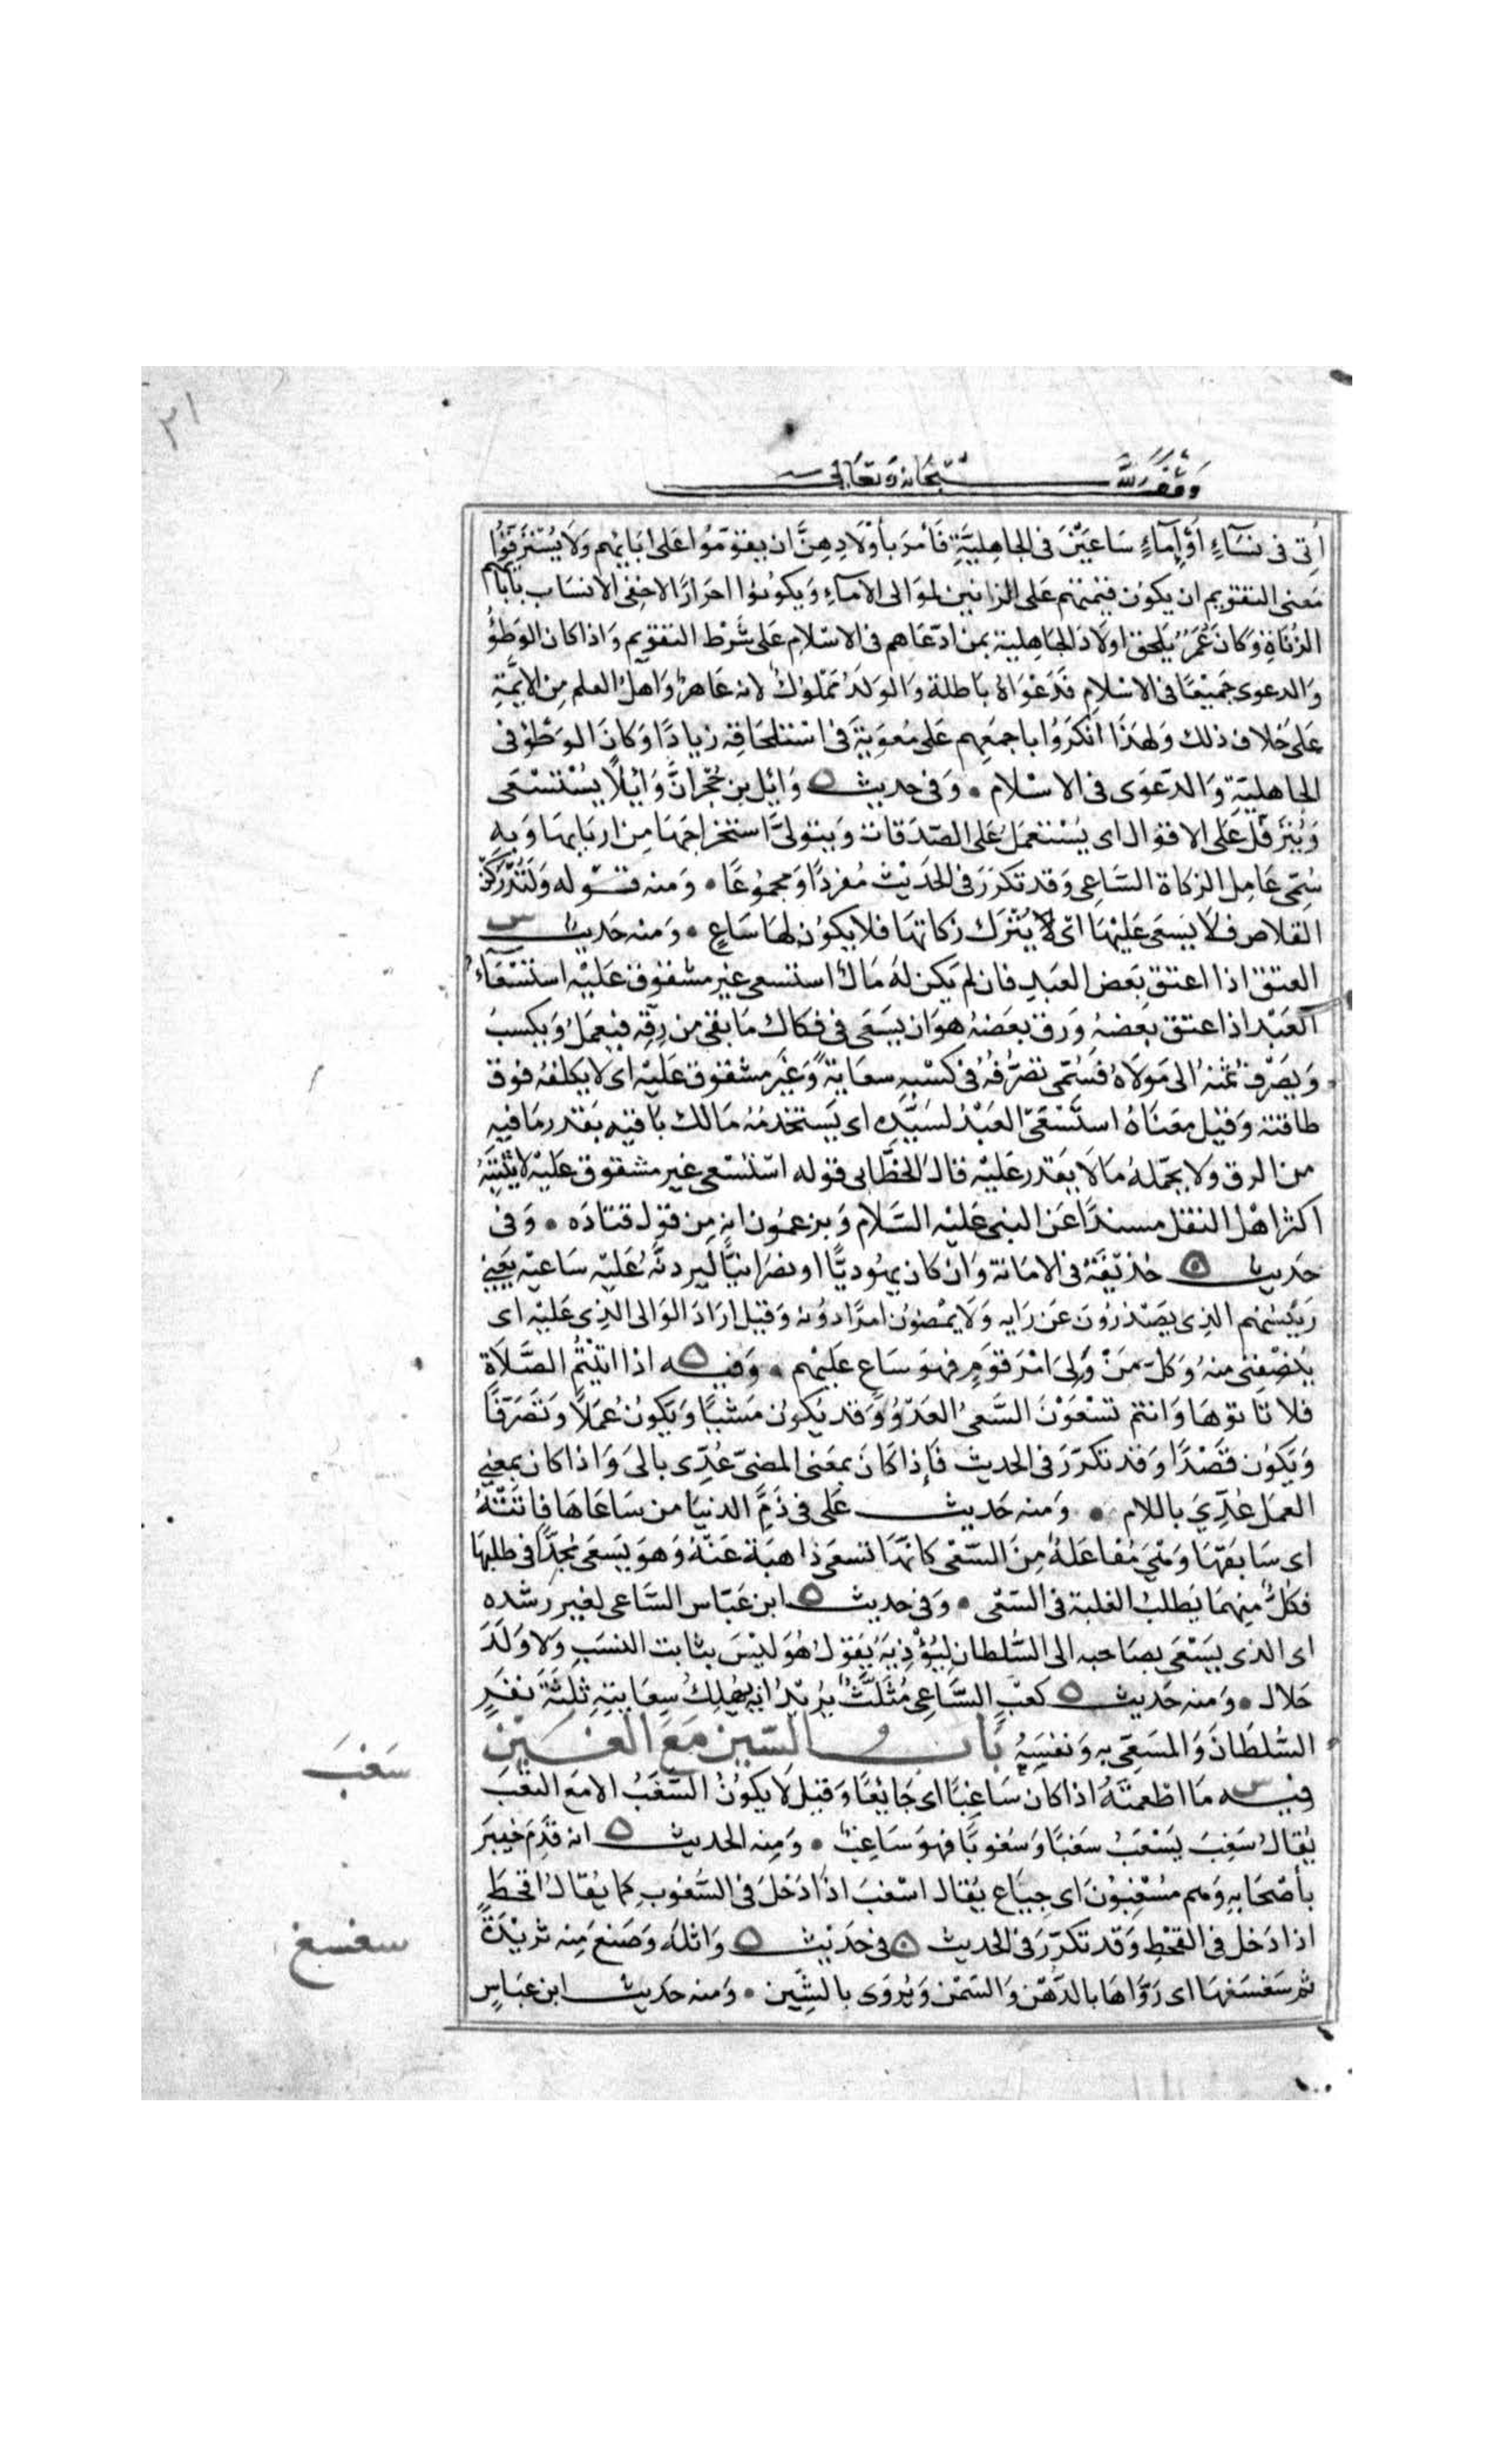 ٢١
وقف لله سبحانه وتعالى
أُتِى فى نسَآءٍ أوْ إمآءٍ سَاعيْنَ فى الجاهِليَّةِ فَأمَرَ بأوْلَادِهِنَّ ان يقوّمُوا عَلى ابَائِهم وَلَا يُسْتَرَقّوُا
مَعنى التقويم ان يكوُن قيمتهم عَلى الزانين لموَالى الامآءِ وَيكوُنوُا احرَارًا لاحِقى الانسَاب بآبائهم
الزُنَاةِ وَكانَ عُمَرُ يُلحق اولَادَ الجَاهِلية بمن ادّعَاهم فى الاسْلامِ عَلى شَرْط التقويم وَاذا كان الوَطؤُ
وَالدعوى جَميْعًا فى الاسْلامِ فَدَعْوَاهُ بَاطلة وَالوَلَدُ مَمْلوُكٌ لانه عَاهرٌ وَاهلُ العلم مِن الايمَّةِ
عَلى خلاف ذلك وَلهذَا انْكَرُوُا باجمَعِهم عَلى مُعوِيَةَ فى اسْتلحَاقِهِ زيادًا وَكانَ الوَطؤ فى
الجاهليّةِ وَالدّعوَى فى الاسْلام • وَفى حديث وَائِل بن حُجْر انَّ وَائِلًا يُسْتَسْعَى
وَيُتَرفّل عَلى الاقوَال اى يُسْتعمَلُ عَلى الصّدَقات وَيتولَّى استخراجَهَا مِن اربَابهَا وَبهِ
سُمِّى عَامِل الزكاة السَّاعِى وَقد تكرّرَ فى الحَديْث مُفردًا وَمجموُعًا • وَمنه قوْله وَلَتُدْركنّ
القلاص فلَا يَسعَى عَليْهَا اىْ لا يُتْرَك زكاتهَا فلا يكوُن لهَا سَاعٍ • وَمنه حَديث
العتق اذا اعتق بَعض العَبدِ فان لم يَكن لهُ مَالٌ استسعى غير مشقوق عَليْه استسْعَآءُ
العَبْد اذا عتق بعضهُ وَرق بعَضهُ هوَ ان يَسعَى فى فكاك مَا بقى من رِقّهِ فيعمَلُ وَيكسبَ
وَيصَرْفُ ثمنهُ الى مَولَاهُ فسُمّى تصَرُّفهُ فى كسْبهِ سعَايةً وَغيَر مشقوق عَليْه اى لا يكلفهُ فوق
طاقته وَقيْل معَنَاهُ استَسْعَىَ العَبْدُ لسَيِّدِه اى يَستخدمُهُ مَالك بَاقيه بَقدر مَا فيهِ
من الرق وَلا يحمّلهُ مَا لَا يَقدر عَليْه قالَ الخطَّابى قوله اسْتسْعى غير مشقوق عَليْه لا يُثْبِتهُ
اكثر اهْل النقل مسندًا عَن النبى عَليْه السّلام وَيزعمُون انه مِن قوْل قتادَه • وَفى
حَديث حُذيْفَة فى الامَانة وَان كان يهُوديًّا او نصرَانيًّا ليردنّهُ عَليّه سَاعيْه يَعنى
رَئيسَهم الذِى يصْدرُوُنَ عَن رَايه وَلَا يمْضوُن امرًا دوُنه وَقيل ارَادَ الوَالى الذِى عَليْه اى
يُنصْفِنى منهُ وَكلّ مَنْ وُلىَ امْرَ قوَمٍ فهوَ سَاعٍ عَليْهم • وَفيه اذا اتيْتُم الصَّلَاةَ
فلا تاتوهَا وَانتم تسْعَوْنَ السَّعىُ العَدْوُ وَقد يكوُن مَشْيًا وَيَكوُن عَمَلًا وَتصَرّفًا
وَيَكوُن قصْدًا وَقد تكرّرَ فى الحديث فَإذا كَانَ بمعَنى المضىّ عُدِّى بالىَ وَاذا كان بمعنى
العمَل عُدِّيَ باللام • وَمنه حَديث عَلى فى ذمّ الدنيا من سَاعَاهَا فاتَتْهُ
اى سَابقهَا وَهْىَ مُفاعَلةٌ مِنَ السّعْى كانهَّا تسعَى ذاهبَة عَنْهُ وَهوَ يَسعَى مُجدًّا فى طلبهَا
فكلٌّ منِهمَا يَطلبُ الغلبة فى السّعْى • وَفى حديث ابن عَبّاس السَّاعى لغير رشدهِ
اى الذى يسَعَى بصَاحبه الى السُّلطان ليُؤْذِيَهُ يَقوُل هُوَ ليْسَ بثابت النسَبِ وَلا وَلَدَ
حَلال • وَمنه حَديث كعبٍ السَّاعِى مُثَلَّثٌ يرُيْدُ انه يُهلِكُ بسِعَايتِهِ ثلثَةَ نفَرٍ
السُّلطَانَ وَالمسَعَى به وَنفسَهُ بَاب السّين مَعَ الغيْن
سَغبَ
فيه مَا اطْعمتَهُ اذا كان سَاغِبًا اى جَايعًا وَقيْل لَا يكوُنُ السَّغَبُ الا مَعَ التعَب
يُقال سَغِبَ يَسْغَبُ سَغبًا وَسُغوبًا فهوَ سَاغِبٌ • وَمنه الحَديث انه قَدِمَ خيبَرَ
بأصْحَابهِ وَهم مسْغِبوُنَ اى جيَاع يُقال اسْغبَ اذَا دَخلَ فى السُّغوُبِ كما يُقالُ اقحطَ
سغسغ
اذا دَخل فى القحْطِ وَقد تكرّرَ فى الحديث فى حَديْث وَاثلهَ وَصَنعَ مِنه ثريْدَةً
ثم سَغسَغهَا اى رَوَّاهَا بالدّهْن وَالسّمْن وَيُروَى بالشِّين • وَمنه حَديث ابن عَبَاسٍ